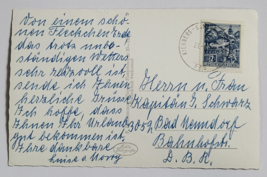 Von einem schö-
nen Fleckchen Erde
das trotz unbe-
ständigen Wetters
sehr reizvoll ist,
sende ich Ihnen
herrliche Grüsse
Ich hoffe, dass
Ihnen Ihr Urlaub
gut bekommen ist,
Ihre dankbare
Luise
Herrn u. Frau
Kapitän I. Schwarz
3052 Bad Nenndorf
Bahnhofstr.
D.B.R.